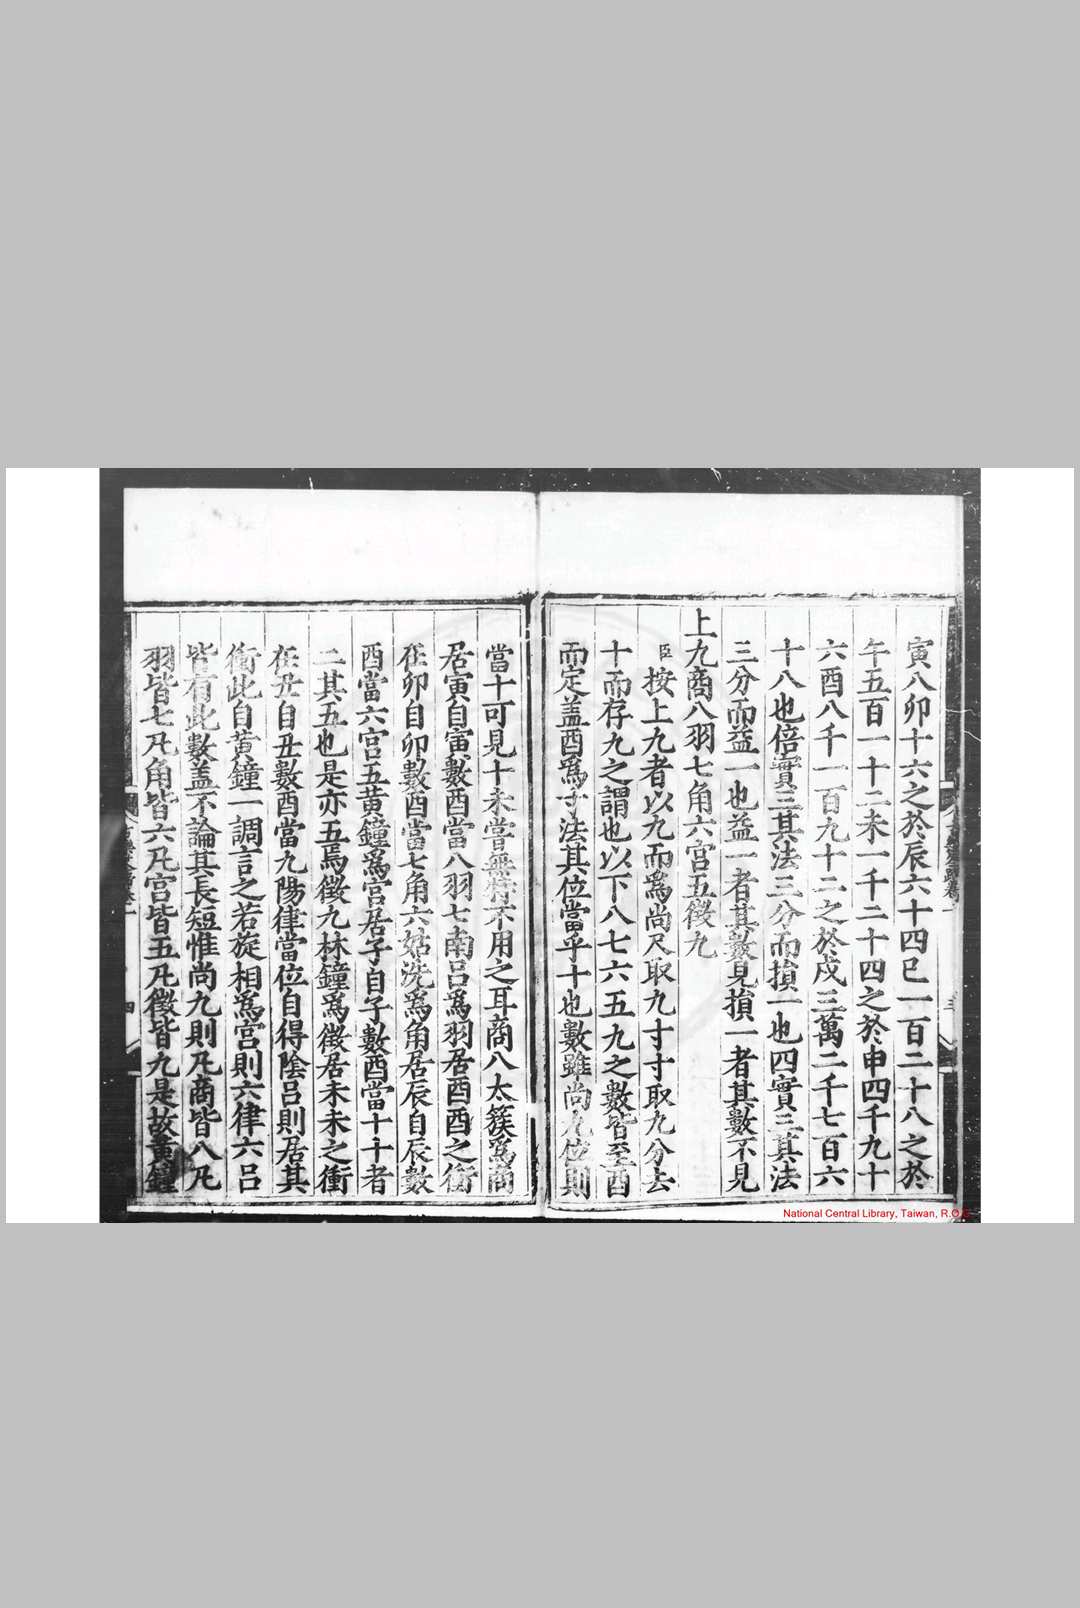 寅八卯十六之於辰六十四巳一百二十八之於
午五百一十二未一千二十四之於申四千九十
六酉八千一百九十二之於戍三萬二千七百六
十八也倍實三其法三分而損一也四實三其法
三分而益一也益一者其數見損一者其數不見
上九商八羽七角六宮五徵九
臣按上九者以九而爲尚尺取九寸寸取九分去
十而存九之謂也以下八七六五九之數皆至酉
而定盖酉爲寸法其位當乎十也數雖尚九位則
當十可見十未嘗無特不用之耳商八太簇爲商
居寅自寅數酉當八羽七南呂爲羽居酉酉之衝
在卯自卯數酉當七角六姑洗爲角居辰自辰數
酉當六宮五黃鐘爲宮居子自子數酉當十十者
二其五也是亦五焉徵九林鐘爲徵居未未之衝
在丑自丑數酉當九陽律當位自得陰呂則居其
衝此自黃鐘一調言之若旋相爲宮則六律六呂
皆有此數盖不論其長短惟尚九則凡商皆八凡
羽皆七凡角皆六凡宮皆五凡徵皆九是故黃鐘
三
四
National Central Library, Taiwan, R.O.